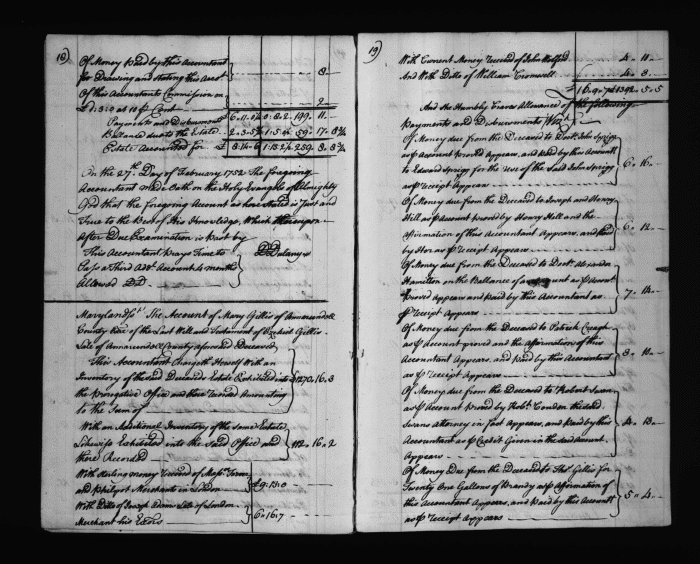 18)
Of Money paid by this Accountant
for Drawing and Stating this Acct 8
Of this Accountant Commission on
2
Payments and Disbursments
Ballance due to the Estate
Estate Accounted for £
On the 27th Day of February 1752 The foregoing
Accountant made Oath on the Holy Evangels of Almighty
God that the foregoing Account as here Stated is Just and
True to the Best of his Knowledge, Which thereupon
After Due Examination is Past by
This Accountant Prays Time to D Dulany
Pass a Third Addl Account 4 months
Allowed DD
Marylandss The Account of Mary Gillis of Annarundell
County Exx of the Last Will and Testament of Ezekiel Gillis
Late of Annarundel County aforesaid Deceased
This Accountant Chargeth Herself With a
Inventory of the said Deceaseds Estate Exhibited into £1270,16,3
the Prerogative Office and there Recorded Amounting
to the Sum of
With an Additional Inventory of the same Estate
Likewise Exhibited into the Said Office and 112,16,2
there Recorded
With Sterling money Received of Messrs
and Philpot Merchants in London £9:13:0
With Ditto of Joseph Adams Late of London
Merchant his Exors 6:16:7
19)
With Current Money Received of John Welford 4 11
And With Ditto of William Cromwell 4 8
£16.9.7 £1392.5.5
And She Humbly Craves Allowance of the following
Payments and Disbursments Vizt
Of Money due from the Deceased to Doctr John Sprigg
as p Account proved Appears, and paid by this Accountant
to Edward Sprigg for the Use of the said John Sprigg 6 16
as p Receipt Appears
Of Money due from the Deceased to Joseph and Henry
Hill as p Account proved by Henry Hill and the
Affirmation of this Accountant Appears, and paid 6 12
by Her as p Receipt Appears
Of Money due from the Deceased to Doctr Alexander
Hamilton on the Ballance of Account as p Account
proved Appears and paid by this Accountant as 7 14
p Receipt Appears
Of Money due from the Deceased to Patrick Creagh
as p account proved and the affirmation of this
Accountant Appears, and paid by this Accountant 3 10
as p Receipt Appears
Of Money due from the Deceased to Robert Swan
as p Account proved by Robt Condon the said
Swans Attorney in fact Appears, and paid by this 4 13
Accountant as p Credit Given in the said Account
Appears
Of Money Due from the Deceased to Thos Gillis for
Twenty One Gallons of Brandy as p Affirmation of
this Accountant Appears, and paid by this Accountt 5 4
as p Receipt Appears